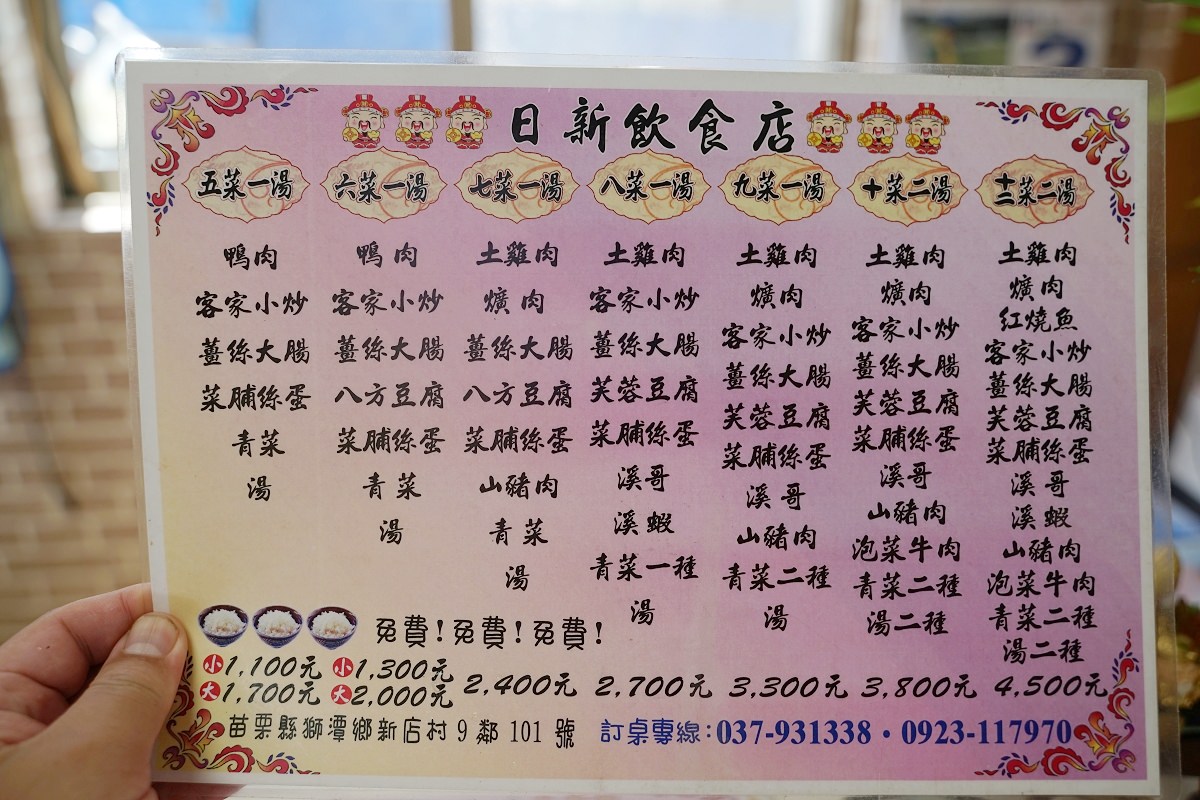 日新飲食店
五菜一湯
鴨肉
客家小炒
薑絲大腸
菜脯絲蛋
青菜
湯
六菜一湯
鴨肉
客家小炒
薑絲大腸
八方豆腐
菜脯絲蛋
青菜
湯
七菜一湯
土雞肉
爌肉
薑絲大腸
八方豆腐
菜脯絲蛋
山豬肉
青菜
湯
八菜一湯
土雞肉
客家小炒
薑絲大腸
芙蓉豆腐
菜脯絲蛋
溪哥
溪蝦
青菜一種
湯
九菜一湯
土雞肉
爌肉
客家小炒
薑絲大腸
芙蓉豆腐
菜脯絲蛋
溪哥
山豬肉
青菜二種
湯
十菜二湯
土雞肉
爌肉
客家小炒
薑絲大腸
芙蓉豆腐
菜脯絲蛋
溪哥
山豬肉
泡菜牛肉
青菜二種
湯二種
十二菜二湯
土雞肉
爌肉
紅燒魚
客家小炒
薑絲大腸
芙蓉豆腐
菜脯絲蛋
溪哥
溪蝦
山豬肉
泡菜牛肉
青菜二種
湯二種
免費!免費!免費!
小1,100元
大1,700元
小1,300元
大2,000元
2,400元
2,700元
3,300元
3,800元
4,500元
苗栗縣獅潭鄉新店村9鄰101號 訂桌專線:037-931338・0923-117970